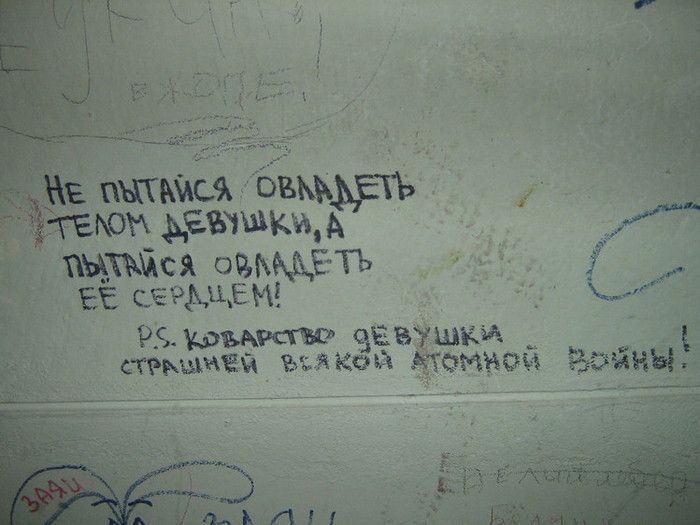 В ЖОПЕ!
НЕ ПЫТАЙСЯ ОВЛАДЕТЬ
ТЕЛОМ ДЕВУШКИ, А
ПЫТАЙСЯ ОВЛАДЕТЬ
ЕЁ СЕРДЦЕМ!
P.S. КОВАРСТВО ДЕВУШКИ
СТРАШНЕЙ ВСЯКОЙ АТОМНОЙ ВОЙНЫ!